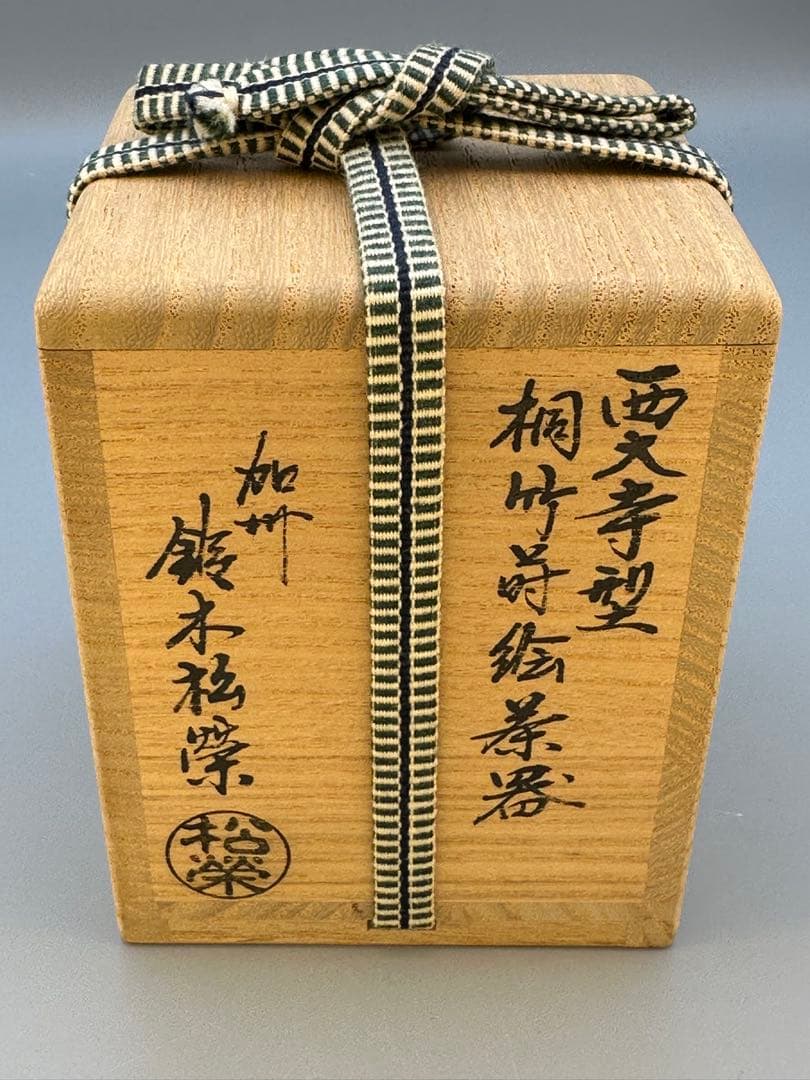 西大寺型
桐竹蒔絵茶器
加州
鈴木松榮
松榮